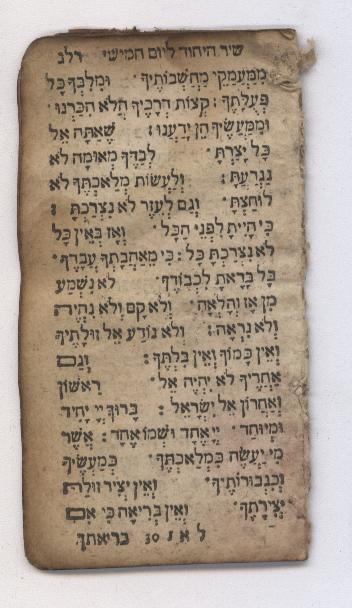 שיר היחוד ליום חמישי רלג
מִמַּעֲמַקֵּי מַחְשְׁבוֹתֶיךָ· וּמִלְבַד כָּל
פְּעֻלָּתֶךָ: קְצוֹת דְּרָכֶיךָ הֲלֹא הִכַּרְנוּ·
וּמִמַּעֲשֶׂיךָ הֵן יָדַעְנוּ: שֶׁאַתָּה אֵל
כָּל יָצַרְתָּ· לְבַדְּךָ מְאוּמָה לֹא
נִגְרַעְתָּ: וְלַעֲשׂוֹת מְלַאכְתֶּךָ לֹא
לוּחָצְתָּ· וְגַם לְעֵזֶר לֹא נִצְרַכְתָּ:
כִּי הָיִיתָ לִפְנֵי הַכֹּל· וְאָז בְּאֵין כָּל
לֹא נִצְרַכְתָּ כָּל: כִּי מֵאַהֲבָתְךָ עֲבָדֶיךָ·
כָּל בָּרָאתָ לִכְבוֹדֶךָ: לֹא נִשְׁמַע
מִן אָז וָהָלְאָה· וְלֹא קָם וְלֹא נִהְיָה
וְלֹא נִרְאָה: וְלֹא נוֹדַע אֵל זוּלָתֶיךָ
וְאֵין כָּמוֹךָ וְאֵין בִּלְתֶּךָ: וְגַם
אַחֲרֶיךָ לֹא יִהְיֶה אֵל· רִאשׁוֹן
וְאַחֲרוֹן אֵל יִשְׂרָאֵל: בָּרוּךְ יְיָ יָחִיד
וּמְיוּחָד· יְיָ אֶחָד וּשְׁמוֹ אֶחָד: אֲשֶׁר
מִי יַעֲשֶׂה כִּמְלַאכְתֶּךָ· כְּמַעֲשֶׂיךָ
וְכִגְבוּרוֹתֶיךָ: וְאֵין יְצִיר זוּלַת
יְצִירָתֶךָ· וְאֵין בְּרִיאָה כִּי אִם
ל א ז 30 בריאתך